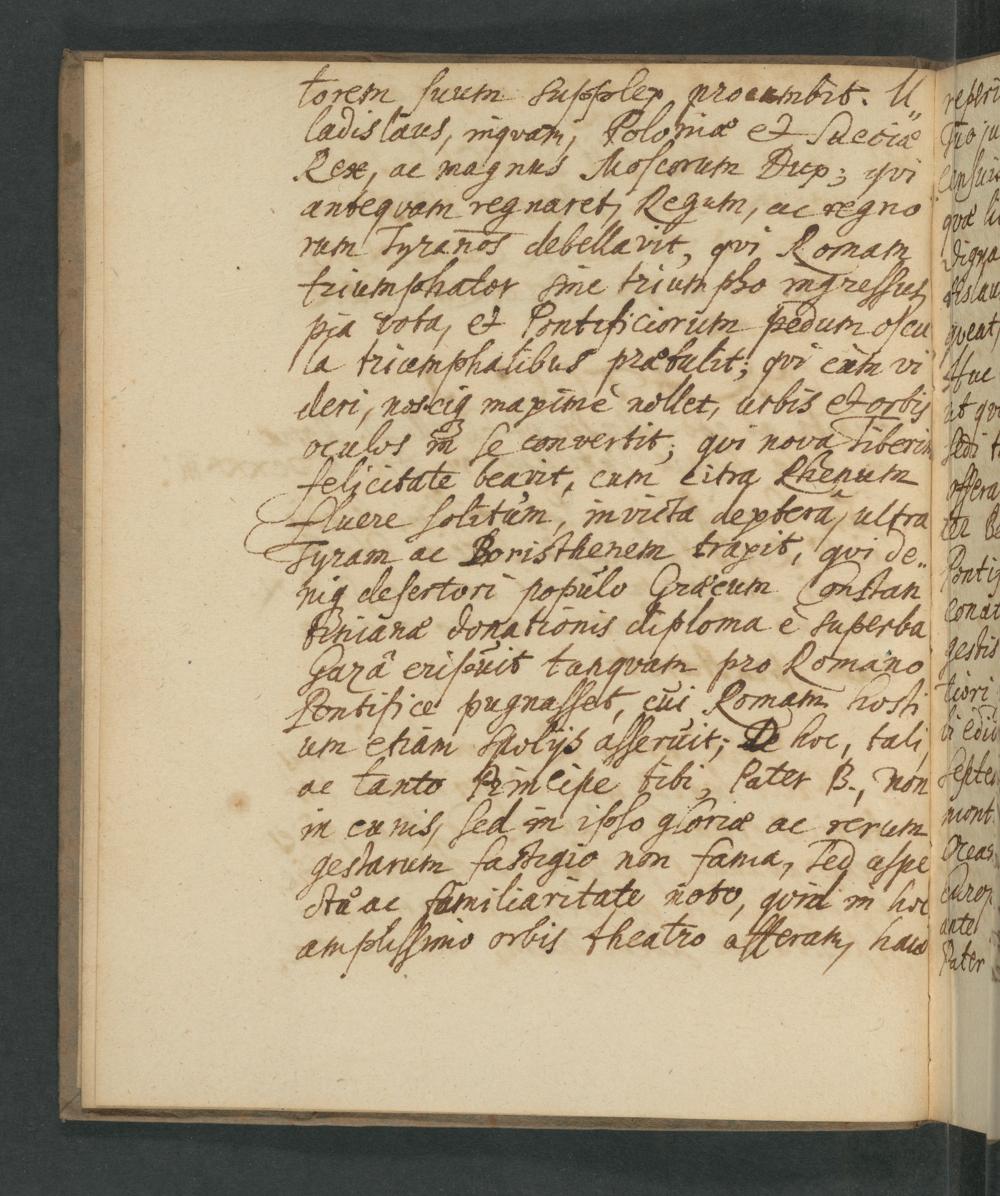 torem suum supplex procumbit. U„
ladislaus, inqvam, Poloniæ et Sueciæ
Rex, ac magnus Moscorum Dux; qvi
anteqvam regnaret, Regum, ac regno
rum Tyranos debellavit, qvi Romam
triumphator sine triumpho ingressus,
pia vota, et Pontificiorum pedum oscu
la triumphalibus prætulit; qvi cùm vi
deri, nosciq maximè nollet, urbis et orbis
oculos in se convertit; qvi nova Tiberim
felicitate beavit, cum citra Rhenum
fluere solitum, invicta dexterâ, ultra
Tyram ac Boristhenem traxit, qvi de„
niq desertori populo Græcum Constan
tinianæ donationis diploma è superba
Gazâ eripuit tanqvam pro Romano
Pontifice pugnasset, cui Romam hosti
um etiam spolijs asseruit; De hoc, tali,
ac tanto Principe tibi, Pater B., non
in cunis, sed in ipso gloriæ ac rerum
gestarum fastigio non fama, sed aspe
ctu ac familiaritate noto, qvid in hoc
amplissimo orbis theatro afferam, haud